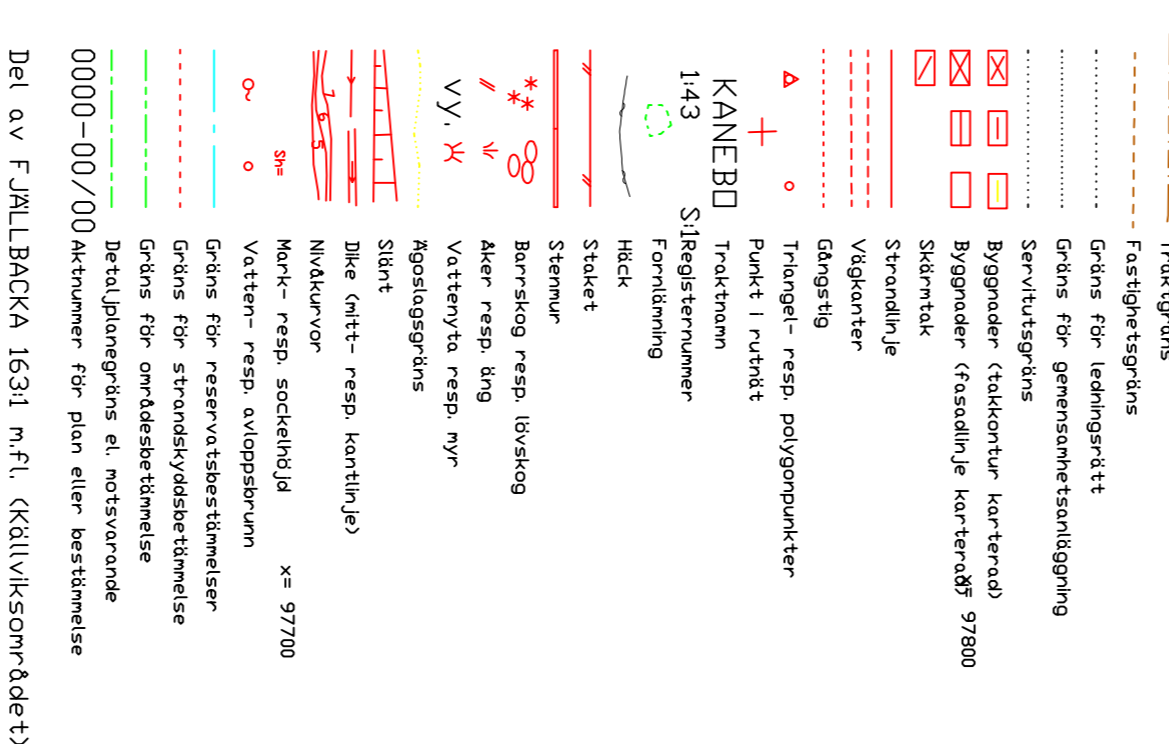 Traktgräns
Fastighetsgräns
Gräns för ledningsrätt
Gräns för gemensamhetsanläggning
Servitutsgräns
Byggnader (takkontur karterad)
Byggnader (fasadlinje karterad)
x= 97800
Skärmtak
Strandlinje
Vägkanter
Gångstig
Triangel- resp. polygonpunkter
Punkt i rutnät
KANEBO Traktnamn
1:43 S:1 Registernummer
Fornlämning
Häck
Staket
Stenmur
Barrskog resp. lövskog
Åker resp. äng
Vy. Vattenyta resp. myr
Ägoslagsgräns
Slänt
Dike (mitt- resp. kantlinje)
7 6 5 Nivåkurvor
Sh= Mark- resp. sockelhöjd x= 97700
Vatten- resp. avloppsbrunn
Gräns för reservatsbestämmelser
Gräns för strandskyddsbetämmelse
Gräns för områdesbetämmelse
Detaljplanegräns el. motsvarande
0000-00/00 Aktnummer för plan eller bestämmelse
Del av FJÄLLBACKA 163:1 m.fl. (Källviksområdet)